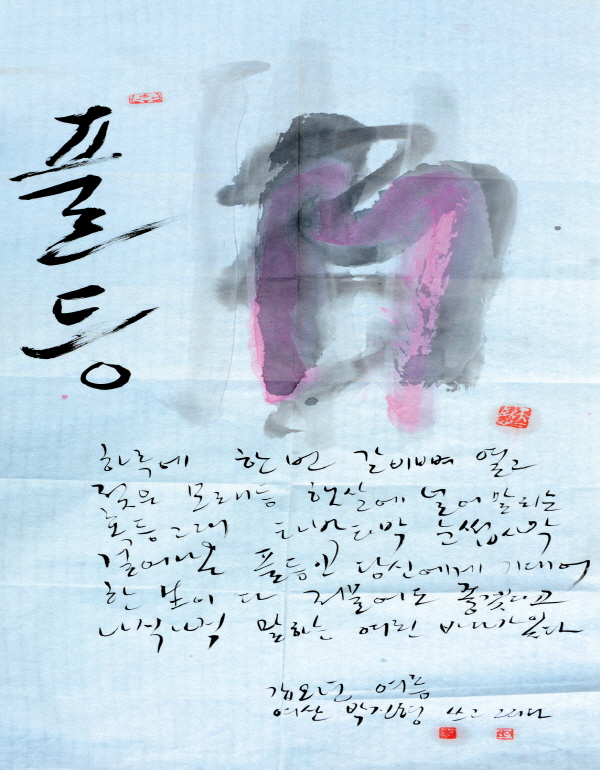 풀등
하루에 한번 갈비뼈 열고
젖은 모래등 햇살에 널어 말리는
혹등고래 타박타박 눈썹사막
걸어나온 풀등인 당신에게 기대어
한 生이 다 저물어도 좋겠다고
나직나직 말하는 여린 바다가 있다
갑오년 여름
여산 박진형 쓰고 그리다